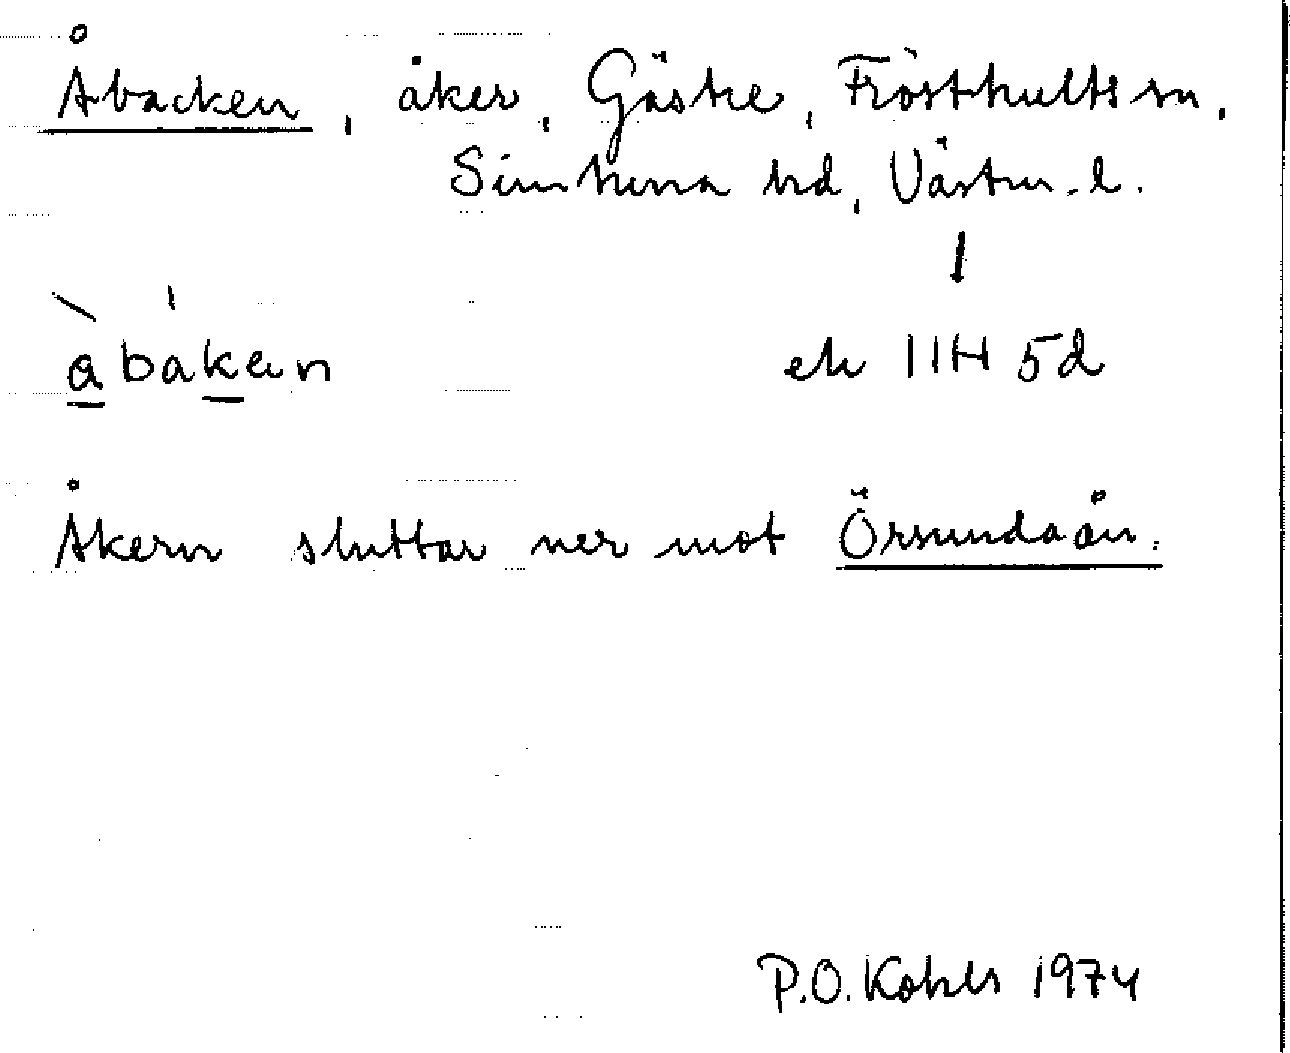 Åbacken, åker, Gäske, Frösthults sn,
Simtuna hd, Västm. l.
àbákan
ek 11H 5d
Åkern sluttar ner mot Örsundaån.
P.O. Kohls 1974